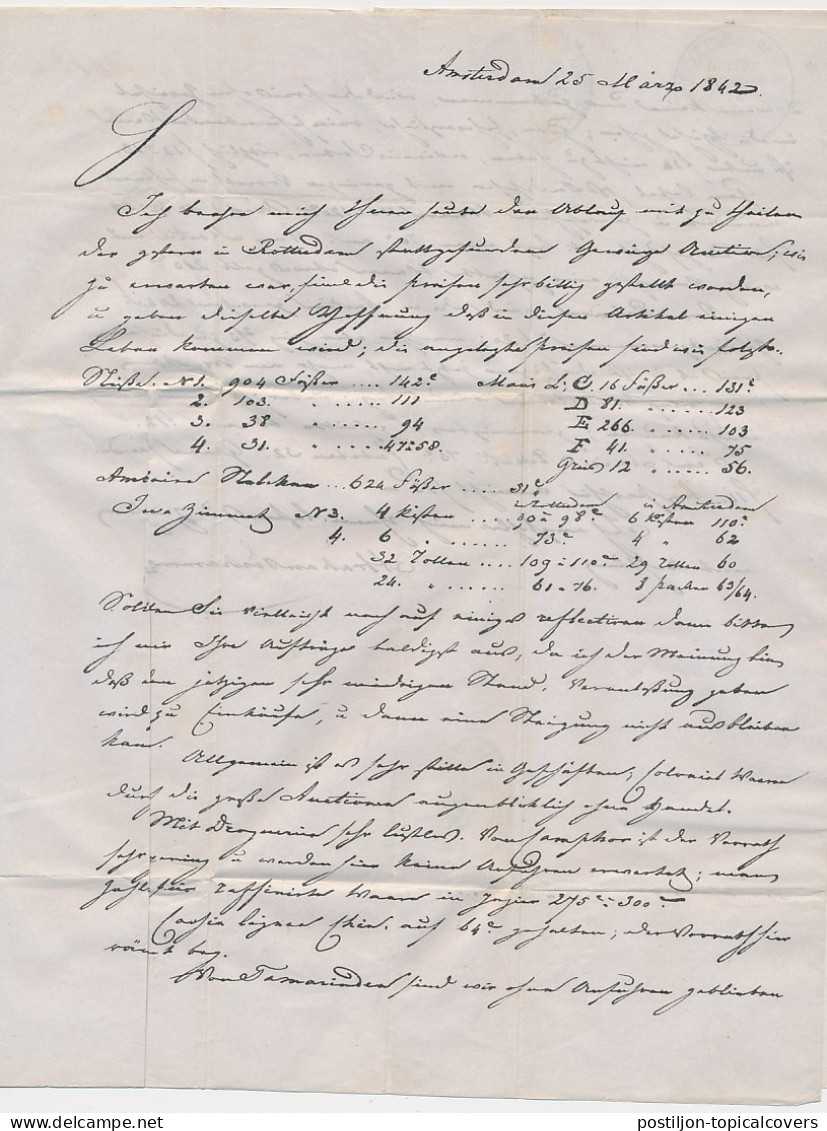 Amsterdam 25 März 1842.
Ich beehre mich Ihnen heute den Ablauf mit zu theilen
der gestern in Rotterdam stattgefundenen Gewürz Auction; wie
zu erwarten war, sind die Preisen sehr billig gestellt worden,
u geben dieselbe Hoffnung daß in diesen Artikel einigen
Leben kommen wird; die angelegte Preisen sind wie folgt:
Nüße. N 1. 904 Fößer .... 142c Macis L: C. 16 Fößer ... 131c
2. 103. " ..... 111 D 81. " ..... 123
3. 38 " ..... 94 E 266. " ..... 103
4. 31. " ..... 47 à 58. F 41. " ..... 75
Gries 12 " ..... 56.
Amboina Nelcken ... 624 Fößer ..... 31c
in Rotterdam in Amsterdam
Java Zimmet N 3. 4 Kisten .... 90 à 98c 6 Kisten 110c
4. 6 " ...... 73c 4 " 62
32 Rollen ... 109 à 110c 29 Rollen 60
24. " ...... 61 à 76. 3 packen 63/64.
Sollten Sie vielleicht noch auf einiges reflectiren dann bitte
ich mir Ihre Aufträge baldigst aus, da ich der Meinung bin
daß den jetzigen sehr niedrigen Stand, Veranlaßung geben
wird zu Einkäufe, u dann eine Steigung nicht ausbleiben
kan.
Allgemein ist es sehr stille in Geschäften; Colonial Waaren
durch die große Auctionen augenblicklich ohne Handel.
Mit Droguerien sehr lustlos. Von Campher ist der Vorrath
sehr gering u werden hier keine Zufuhren erwartet; man
zahlt für raffinirte Waare in 275c à 300c
Cassia lignea Chin. auf 64c gehalten; der Vorrath hier
räumt beg.
Von Tamarinden sind wir ohne Zufuhren geblieben
postiljon-topicalcovers